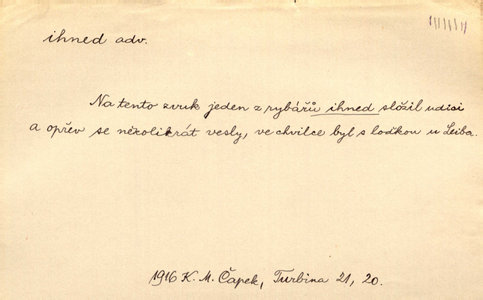 ihned adv.
Na tento zvuk jeden z rybářů ihned složil udici
a opřev se několikrát vesly, ve chvilce byl s loďkou u Leiba.
1916 K. M. Čapek, Turbina 21, 20.